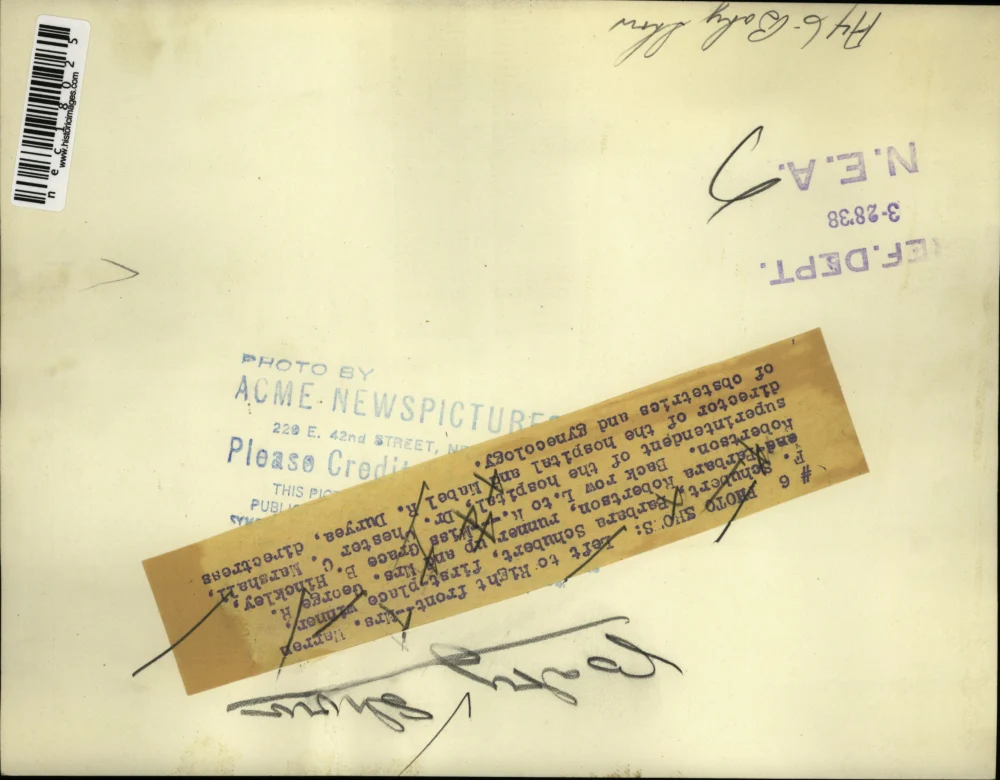 nec18025
www.historicimages.com
Baby Show
REF. DEPT.
3-28'38
N.E.A.
PHOTO BY
ACME NEWSPICTURES
220 E. 42nd STREET,
Please Credit
THIS
# 6 PHOTO SHO.S: Left to Right front--Mrs. Warren
F. Schubert, Barbara Schubert, first place winner.
and Barbara Robertson, runner up and Mrs. George R.
Robertson. Back row L. to R. Miss Grace E. Hinckley,
superintendent of the hospital, Dr. Chester C. Marshall,
director of the hospital and Mabel R. Duryea, directress
of obstetrics and gynecology.
Baby Show